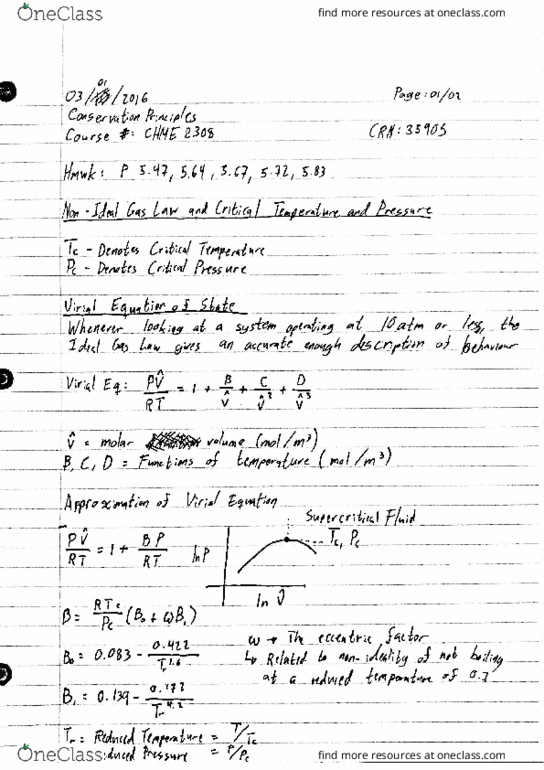 OneClass
find more resources at oneclass.com
01
03/ /2016
Page: 01/02
Conservation Principles
Course #: CHME 2308
CRN: 33905
Hmwk: P 5.47, 5.64, 5.67, 5.72, 5.83
Non-Ideal Gas Law and Critical Temperature and Pressure
Tc - Denotes Critical Temperature
Pc - Denotes Critical Pressure
Virial Equation of State
Whenever looking at a system operating at 10 atm or less, the
Ideal Gas Law gives an accurate enough description of behaviour
Virial Eq: PV̂/RT = 1 + B/V̂ + C/V̂² + D/V̂³
V̂ = molar volume (mol/m³)
B, C, D = Functions of temperature (mol/m³)
Approximation of Virial Equation
Supercritical Fluid
PV̂/RT = 1 + BP/RT
ln P
Tc, Pc
ln V̂
B = RTc/Pc (B₀ + ωB₁)
ω → The eccentric factor
B₀ = 0.083 - 0.422/Tr^1.6
↳ Related to non-ideality of not boiling
at a reduced temperature of 0.7
B₁ = 0.139 - 0.172/Tr^4.2
Tr = Reduced Temperature = T/Tc
duced Pressure = P/Pc
OneClass
find more resources at oneclass.com